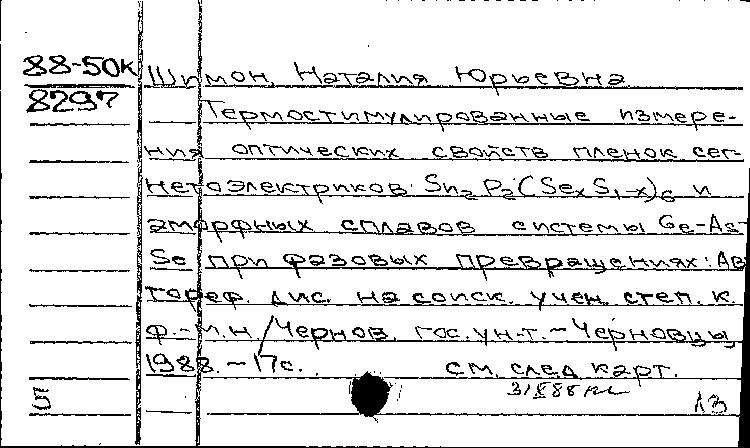 88-50к Шимон, Наталия Юрьевна
8297 Термостимулированные измере-
ния оптических свойств пленок сег-
нетоэлектриков Sn₂P₂(SexS1-x)6 и
аморфных сплавов системы Ge-As-
Se при фазовых превращениях: Ав
тореф. дис. на соиск. учен. степ. к.
ф.-м.н. / Чернов. гос. ун-т. - Черновцы
1988. - 17с. см. след карт.
5 АЗ